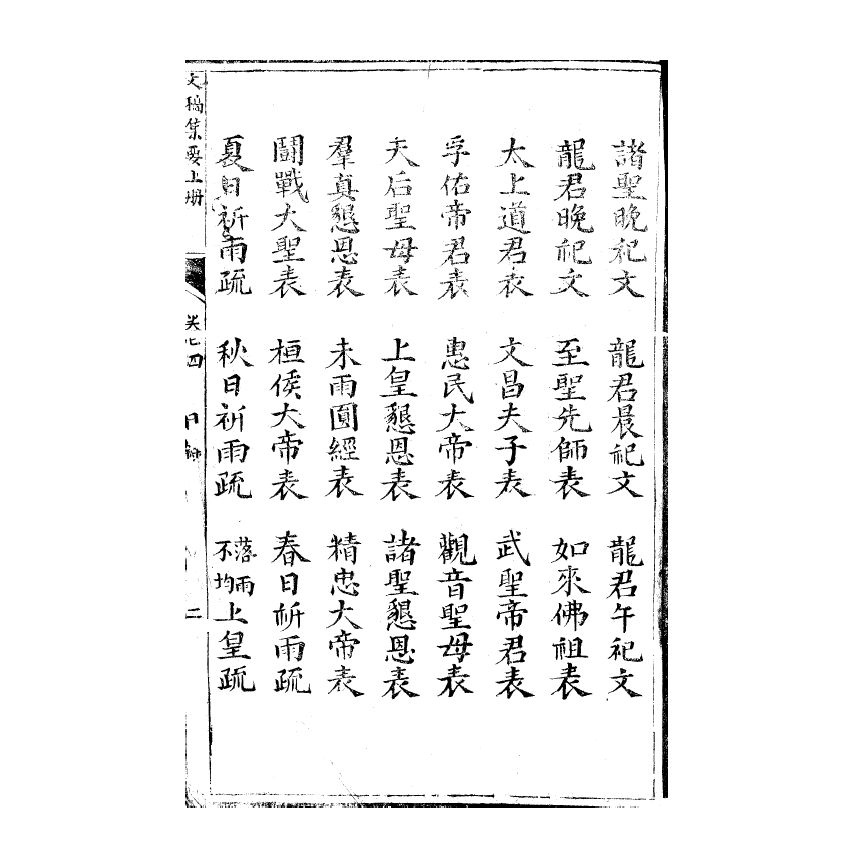 諸聖晚祀文　龍君晨祀文　龍君午祀文
龍君晚祀文　至聖先師表　如來佛祖表
太上道君表　文昌夫子表　武聖帝君表
孚佑帝君表　惠民大帝表　觀音聖母表
天后聖母表　上皇懇恩表　諸聖懇恩表
羣真懇恩表　未雨圓經表　精忠大帝表
鬪戰大聖表　桓侯大帝表　春日祈雨疏
夏日祈雨疏　秋日祈雨疏　落雨不均上皇疏
文稿集要上册
四
二